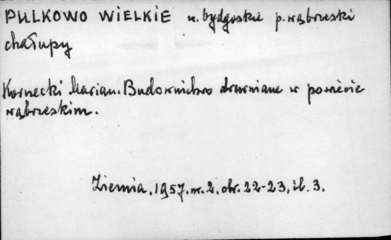 PULKOWO WIELKIE w. bydgoskie p. wąbrzeski
chałupy
Kornecki Marian. Budownictwo drewniane w powiecie
wąbrzeskim.
Ziemia, 1957. nr. 2, str. 22-23, il. 3.